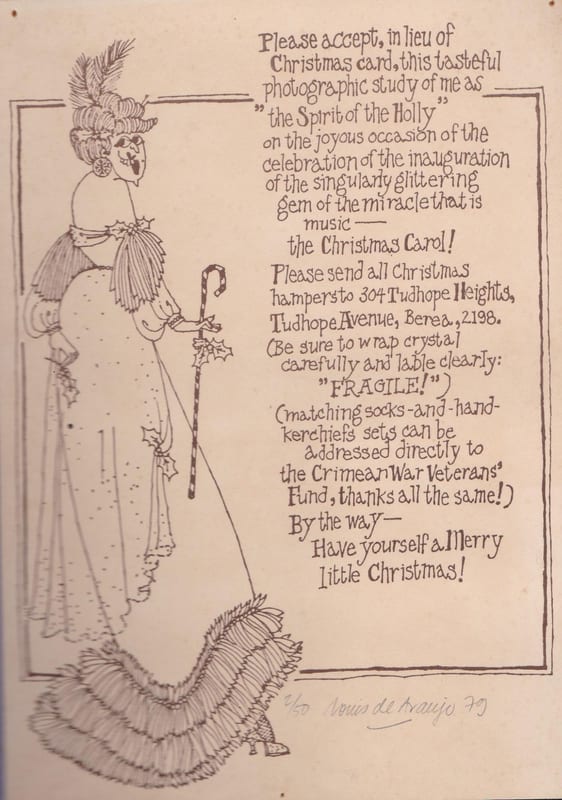 Please accept, in lieu of
Christmas card, this tasteful
photographic study of me as
"the Spirit of the Holly"
on the joyous occasion of the
celebration of the inauguration
of the singularly glittering
gem of the miracle that is
music —
the Christmas Carol!
Please send all Christmas
hampers to 304 Tudhope Heights,
Tudhope Avenue, Berea, 2198.
(Be sure to wrap crystal
carefully and lable clearly:
"FRAGILE!")
(matching socks-and-hand-
kerchiefs sets can be
addressed directly to
the Crimean War Veterans'
Fund, thanks all the same!)
By the way —
Have yourself a Merry
little Christmas!
2/50 Louis de Araujo 79